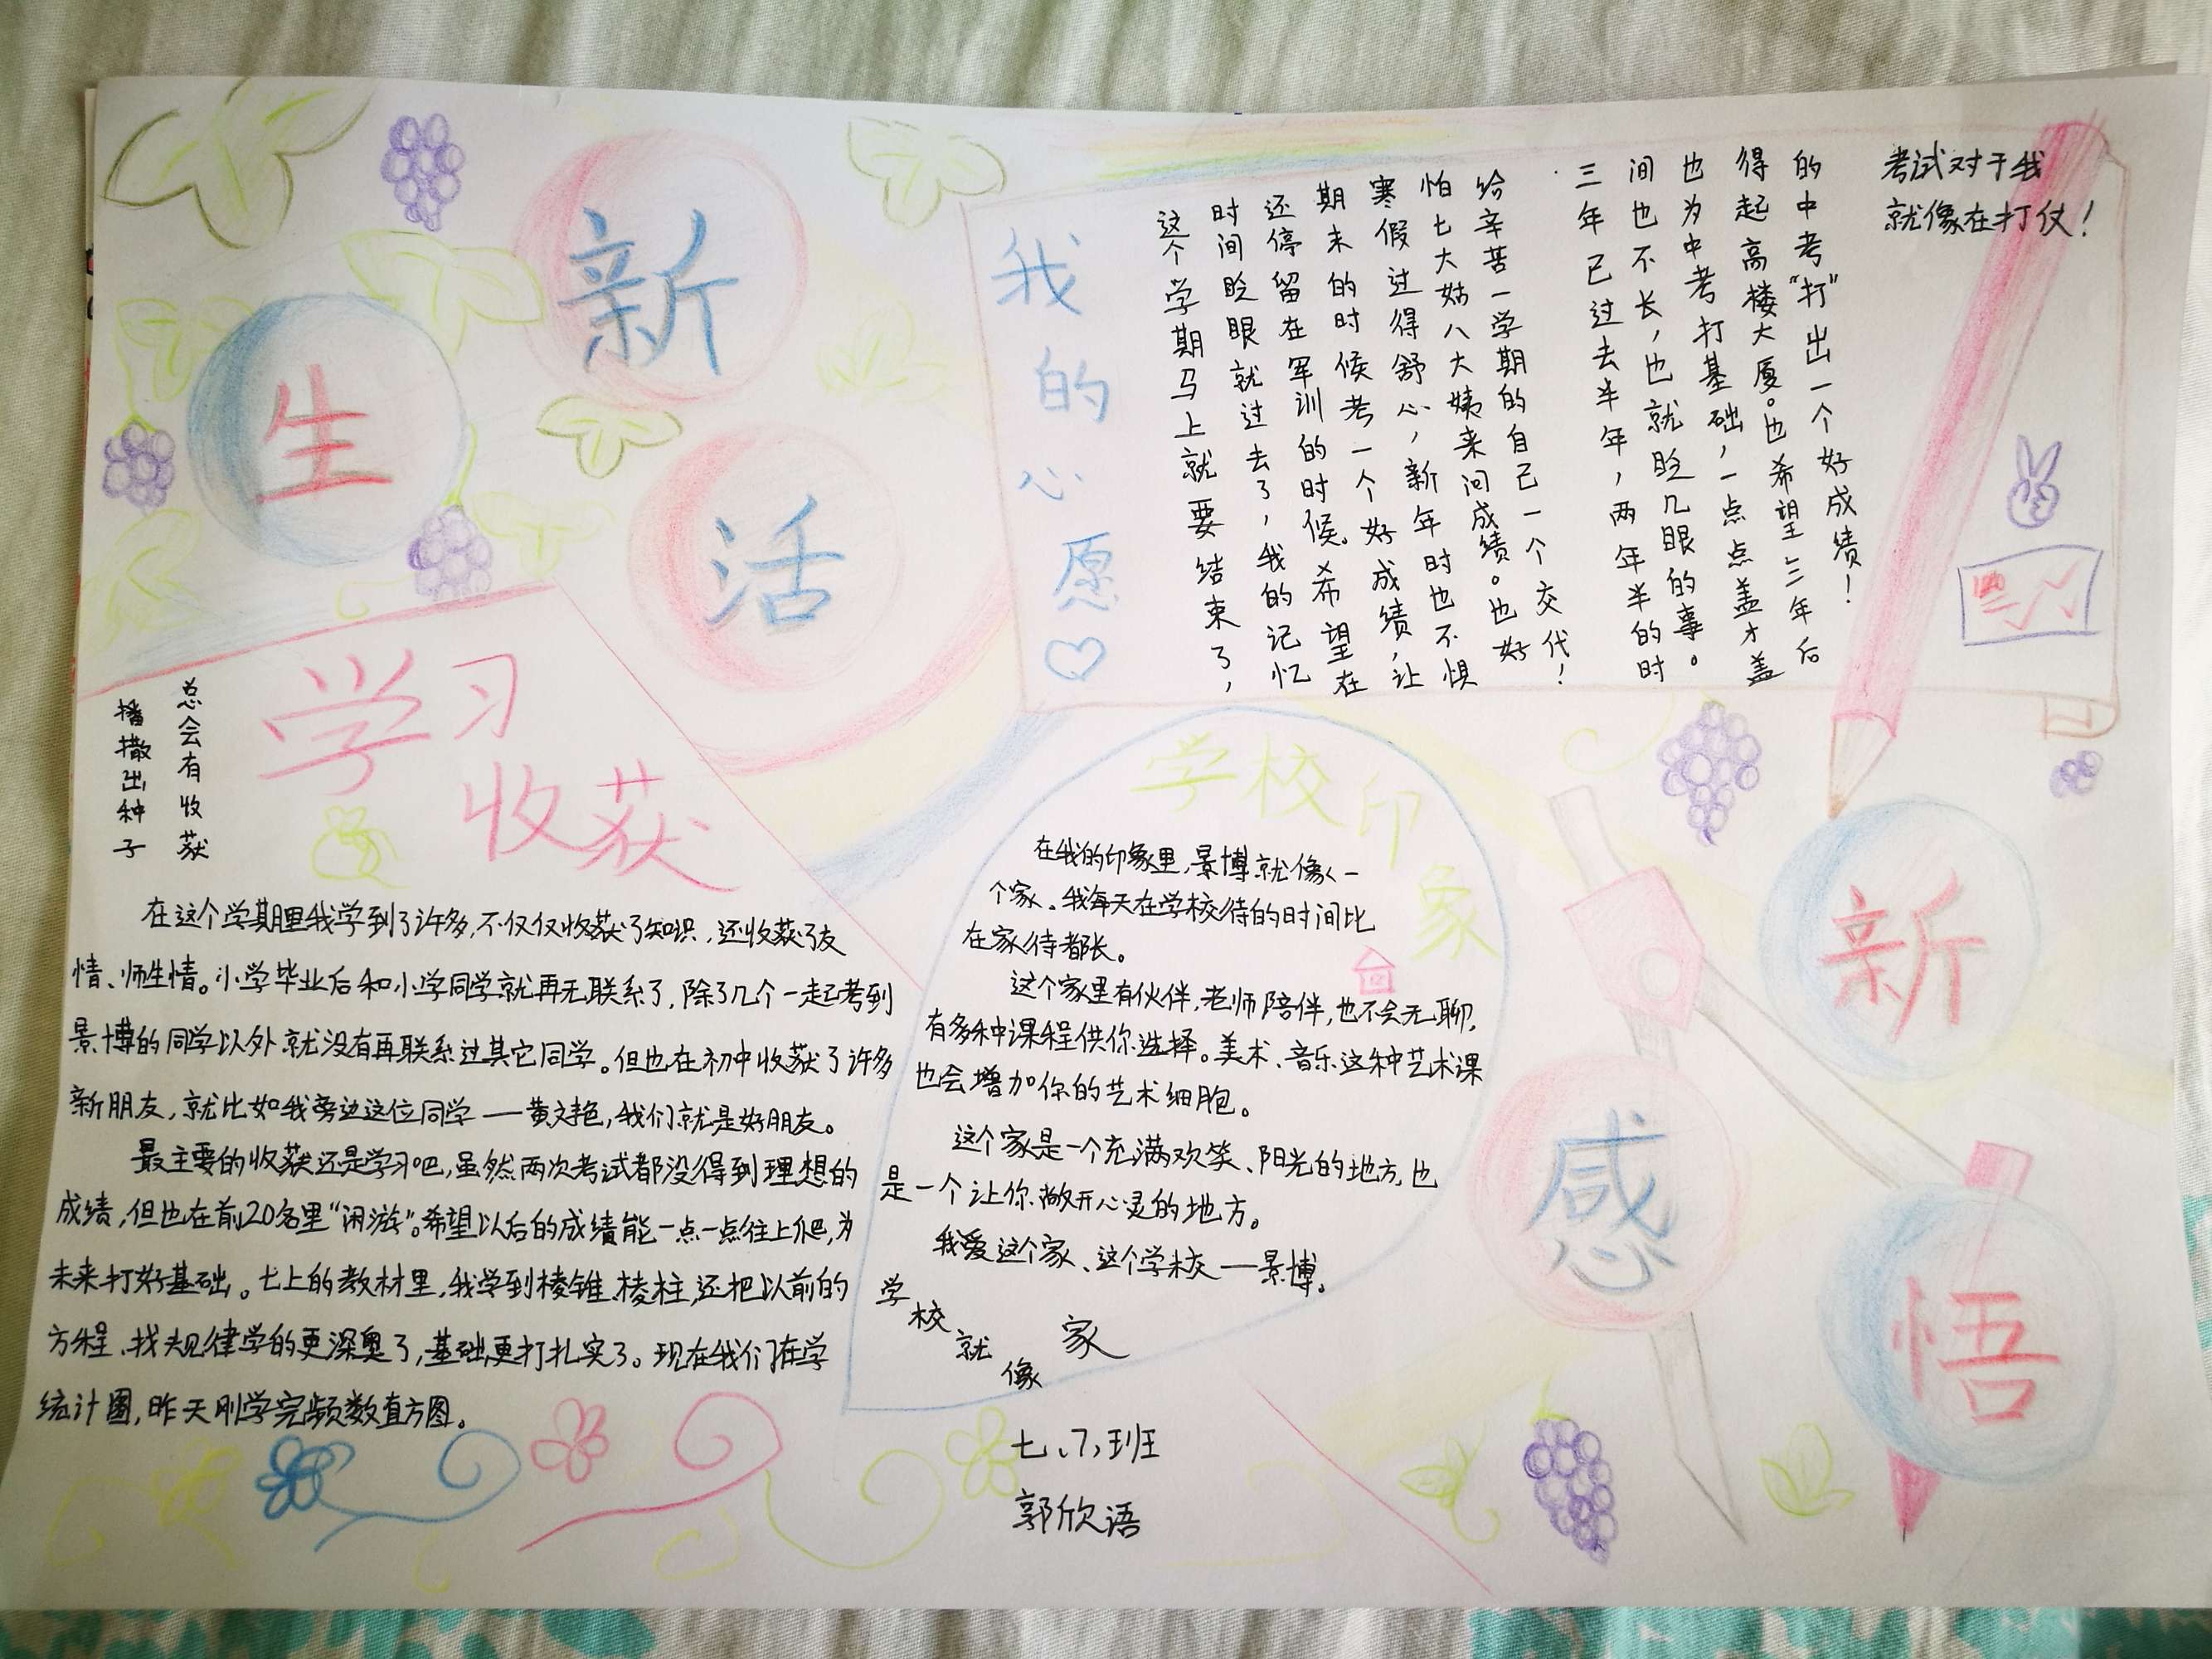 新
生
活
学习
收获
播撒出种子
总会有收获
在这个学期里我学到了许多,不仅仅收获了知识,还收获了友
情、师生情。小学毕业后和小学同学就再无联系了,除了几个一起考到
景博的同学以外就没有再联系过其它同学。但也在初中收获了许多
新朋友,就比如我旁边这位同学——黄文艳,我们就是好朋友。
最主要的收获还是学习吧,虽然两次考试都没得到理想的
成绩,但也在前20名里“闲游”。希望以后的成绩能一点一点往上爬,为
未来打好基础。七上的教材里,我学到棱锥、棱柱,还把以前的
方程、找规律学的更深奥了,基础更打扎实了。现在我们在学
统计图,昨天刚学完频数直方图。
我的心愿
这个学期马上就要结束了,
时间眨眼就过去了,我的记忆
还停留在军训的时候。希望在
期末的时候考一个好成绩,让
寒假过得舒心,新年时也不惧
怕七大姑八大姨来问成绩。也好
给辛苦一学期的自己一个交代!
三年已过去半年,两年半的时
间也不长,也就眨几眼的事。
也为中考打基础,一点点盖才盖
得起高楼大厦。也希望三年后
的中考“打”出一个好成绩!
考试对于我
就像在打仗!
学校印象
在我的印象里,景博就像一
个家。我每天在学校待的时间比
在家待都长。
这个家里有伙伴,老师陪伴,也不会无聊,
有多种课程供你选择。美术、音乐这种艺术课
也会增加你的艺术细胞。
这个家是一个充满欢笑、阳光的地方,也
是一个让你敞开心灵的地方。
我爱这个家、这个学校——景博。
学校就像家
新
感
悟
七、7、班
郭欣语